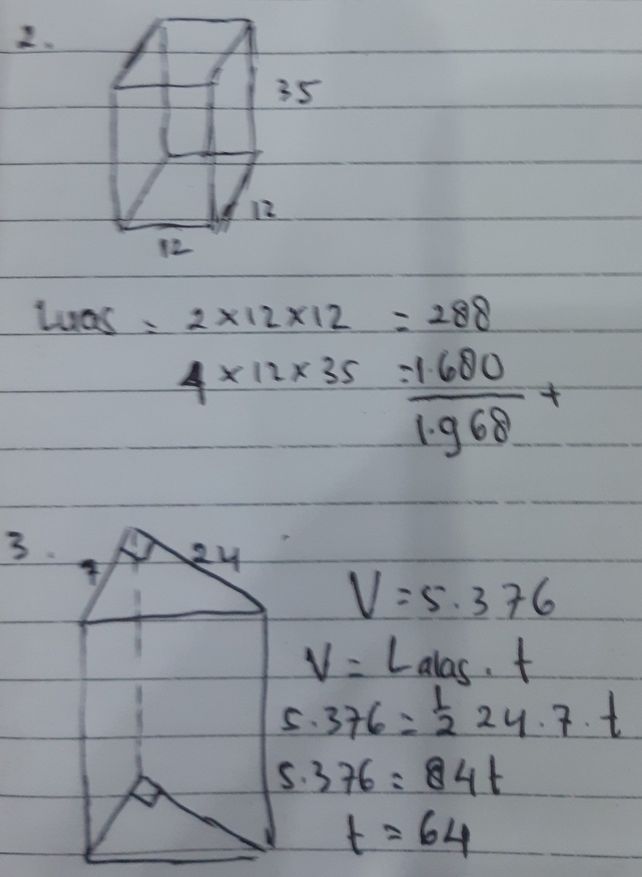 2.
35
12
12
Luas = 2×12×12 = 288
4×12×35 = 1.680
+
1.968
3.
7
24
V = 5.376
V = Lalas . t
5.376 = 1/2 24.7.t
5.376 = 84t
t = 64